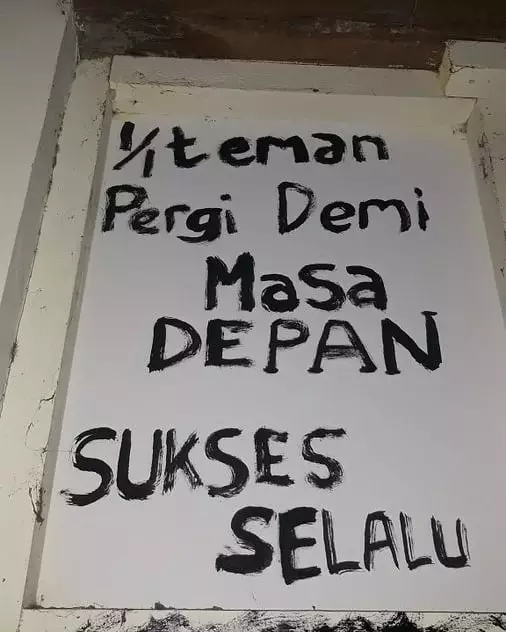 1/1 teman
Pergi Demi
Masa
DEPAN
SUKSES
SELALU